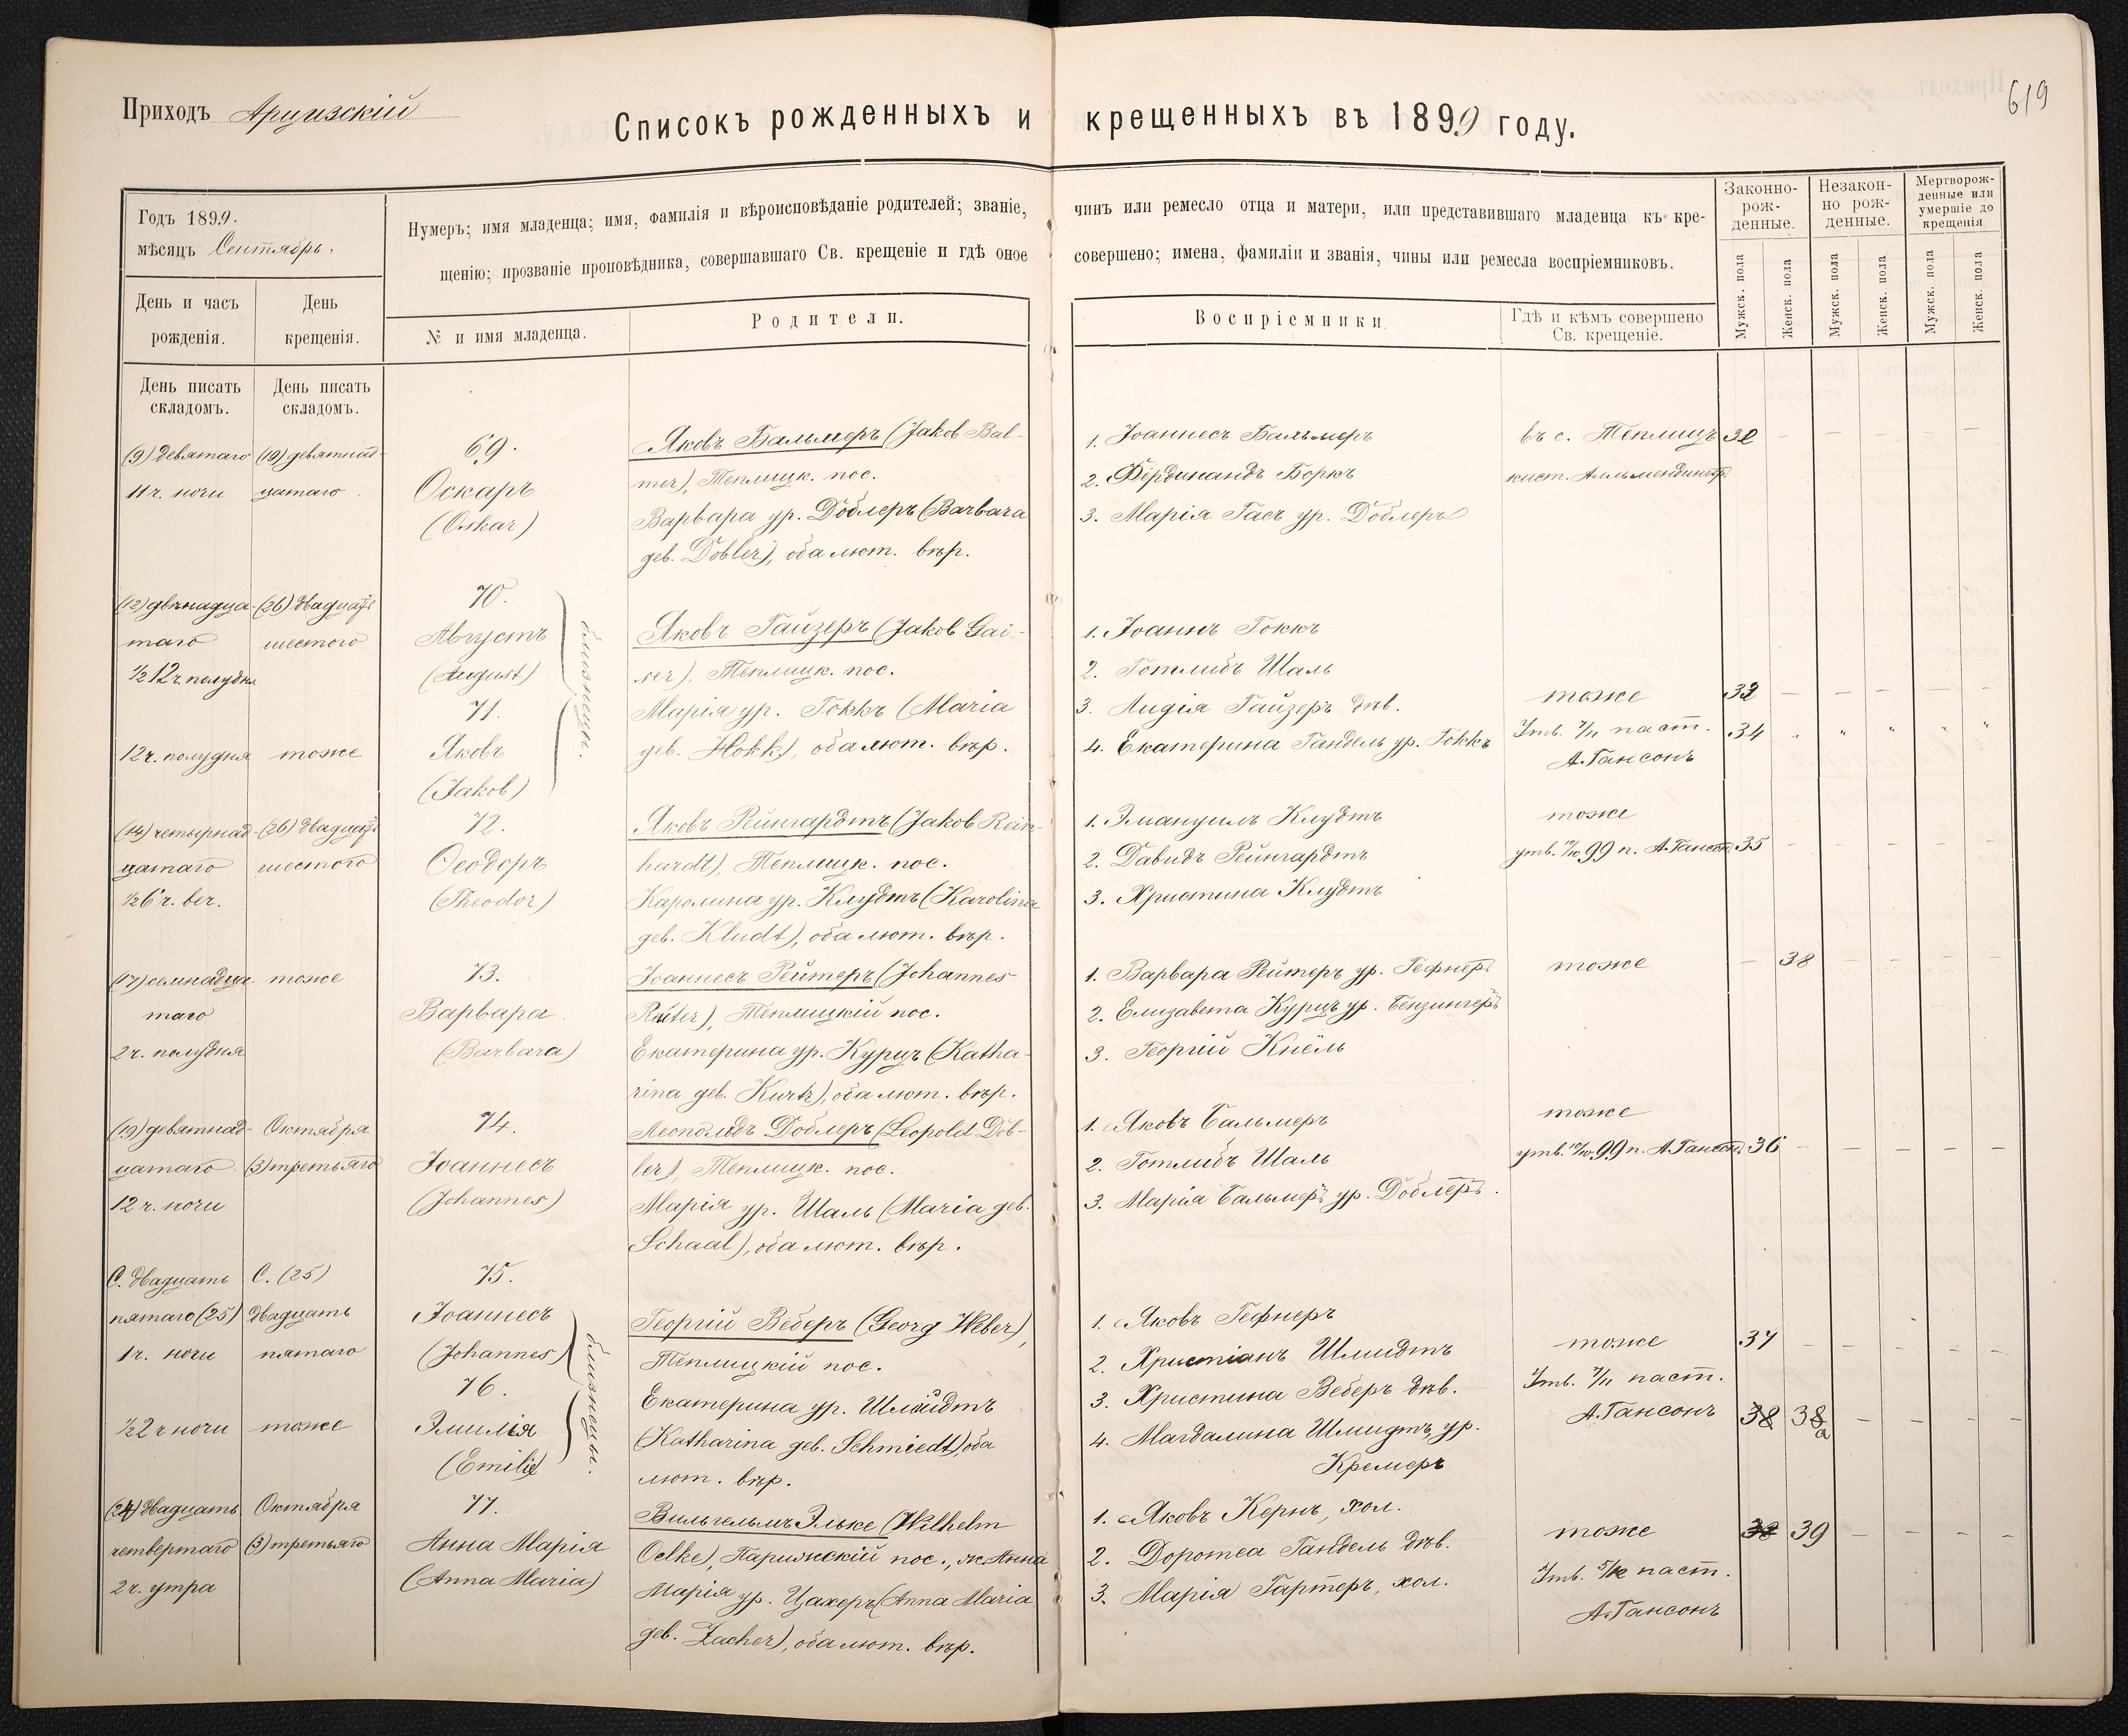 Приходъ Арцизскій
619
Списокъ рожденныхъ и крещенныхъ въ 1899 году.
Годъ 1899.
мѣсяцъ Сентябрь.
День и часъ рожденія.
День крещенія.
Нумеръ; имя младенца; имя, фамилія и вѣроисповѣданіе родителей; званіе, чинъ или ремесло отца и матери, или представившаго младенца къ кре-
щенію; прозваніе проповѣдника, совершавшаго Св. крещеніе и гдѣ оное совершено; имена, фамиліи и званія, чины или ремесла воспріемниковъ.
№ и имя младенца.
Родители.
Воспріемники
Гдѣ и кѣмъ совершено Св. крещеніе.
Законно-рож-денные.
Незакон-но рож-денные.
Мертворож-денные или умершіе до крещенія
Мужск. пола
Женск. пола
Мужск. пола
Женск. пола
Мужск. пола
Женск. пола
День писать складомъ.
День писать складомъ.
(9) девятаго
11 ч. ночи
(19) девятнад-
цатаго
69.
Оскаръ
(Oskar)
Яковъ Бальмеръ (Jakob Bal-
mer), Теплицк. пос.
Варвара ур. Доблеръ (Barbara
geb. Dobler), оба лют. вѣр.
1. Іоаннесъ Бальмеръ
2. Фердинандъ Боркъ
3. Марія Гасъ ур. Доблеръ
въ с. Теплицъ
кист. Алльмендингеръ
32
(12) двѣнадца-
таго
½12 ч. полудня
(26) двадцать
шестого
70.
Августъ
(August)
близнецы.
Яковъ Гайзеръ (Jakob Gai-
ser), Теплицк. пос.
Марія ур. Гоккъ (Maria
geb. Hokk), оба лют. вѣр.
1. Іоаннъ Гоккъ
2. Готлибъ Шаль
3. Лидія Гайзеръ дѣв.
4. Екатерина Гандель ур. Гоккъ
тоже
33
12 ч. полудня
тоже
71.
Яковъ
(Jakob)
Утв. 7/11 паст.
А. Гансонъ
34
(14) четырнад-
цатаго
½6 ч. веч.
(26) двадцать
шестого
72.
Ѳеодоръ
(Theodor)
Яковъ Рейнгардтъ (Jakob Rein-
hardt), Теплицк. пос.
Каролина ур. Клудтъ (Karolina
geb. Kludt), оба лют. вѣр.
1. Эмануилъ Клудтъ
2. Давидъ Рейнгардтъ
3. Христина Клудтъ
тоже
99 п. А. Гансонъ
35
(17) семнадца-
таго
2 ч. полудня
тоже
73.
Варвара
(Barbara)
Іоаннесъ Рейтеръ (Johannes
Reiter), Теплицкій пос.
Екатерина ур. Курцъ (Katha-
rina geb. Kurtz), оба лют. вѣр.
1. Варвара Рейтеръ ур. Гефнеръ
2. Елизавета Курцъ ур. Бензингеръ
3. Георгій Кнёль
тоже
38
(19) девятнад-
цатаго
12 ч. ночи
Октября
(3) третьяго
74.
Іоаннесъ
(Johannes)
Леопольдъ Доблеръ (Leopold Dob-
ler), Теплицк. пос.
Марія ур. Шаль (Maria geb.
Schaal), оба лют. вѣр.
1. Яковъ Бальмеръ
2. Готлибъ Шаль
3. Марія Бальмеръ ур. Доблеръ.
тоже
99 п. А. Гансонъ
36
С. двадцать
пятаго (25)
1 ч. ночи
С. (25)
двадцать
пятаго
75.
Іоаннесъ
(Johannes)
близнецы.
Георгій Веберъ (Georg Weber),
Теплицкій пос.
Екатерина ур. Шмидтъ
(Katharina geb. Schmiedt), оба
лют. вѣр.
1. Яковъ Гефнеръ
2. Христіанъ Шмидтъ
3. Христина Веберъ дѣв.
4. Магдалина Шмидтъ ур.
Кремеръ
тоже
37
½2 ч ночи
тоже
76.
Эмилія
(Emilie)
Утв. 7/11 паст.
А. Гансонъ
38 38a
(24) двадцать
четвертаго
2 ч. утра
Октября
(3) третьяго
77.
Анна Марія
(Anna Maria)
Вильгельмъ Эльке (Wilhelm
Oelke), Парижскій пос., ж. Анна
Марія ур. Цахеръ (Anna Maria
geb. Zacher), оба лют. вѣр.
1. Яковъ Кернъ, хол.
2. Доротеа Гандель дѣв.
3. Марія Гартеръ, хол.
тоже
Утв. 5/12 паст.
А. Гансонъ
39